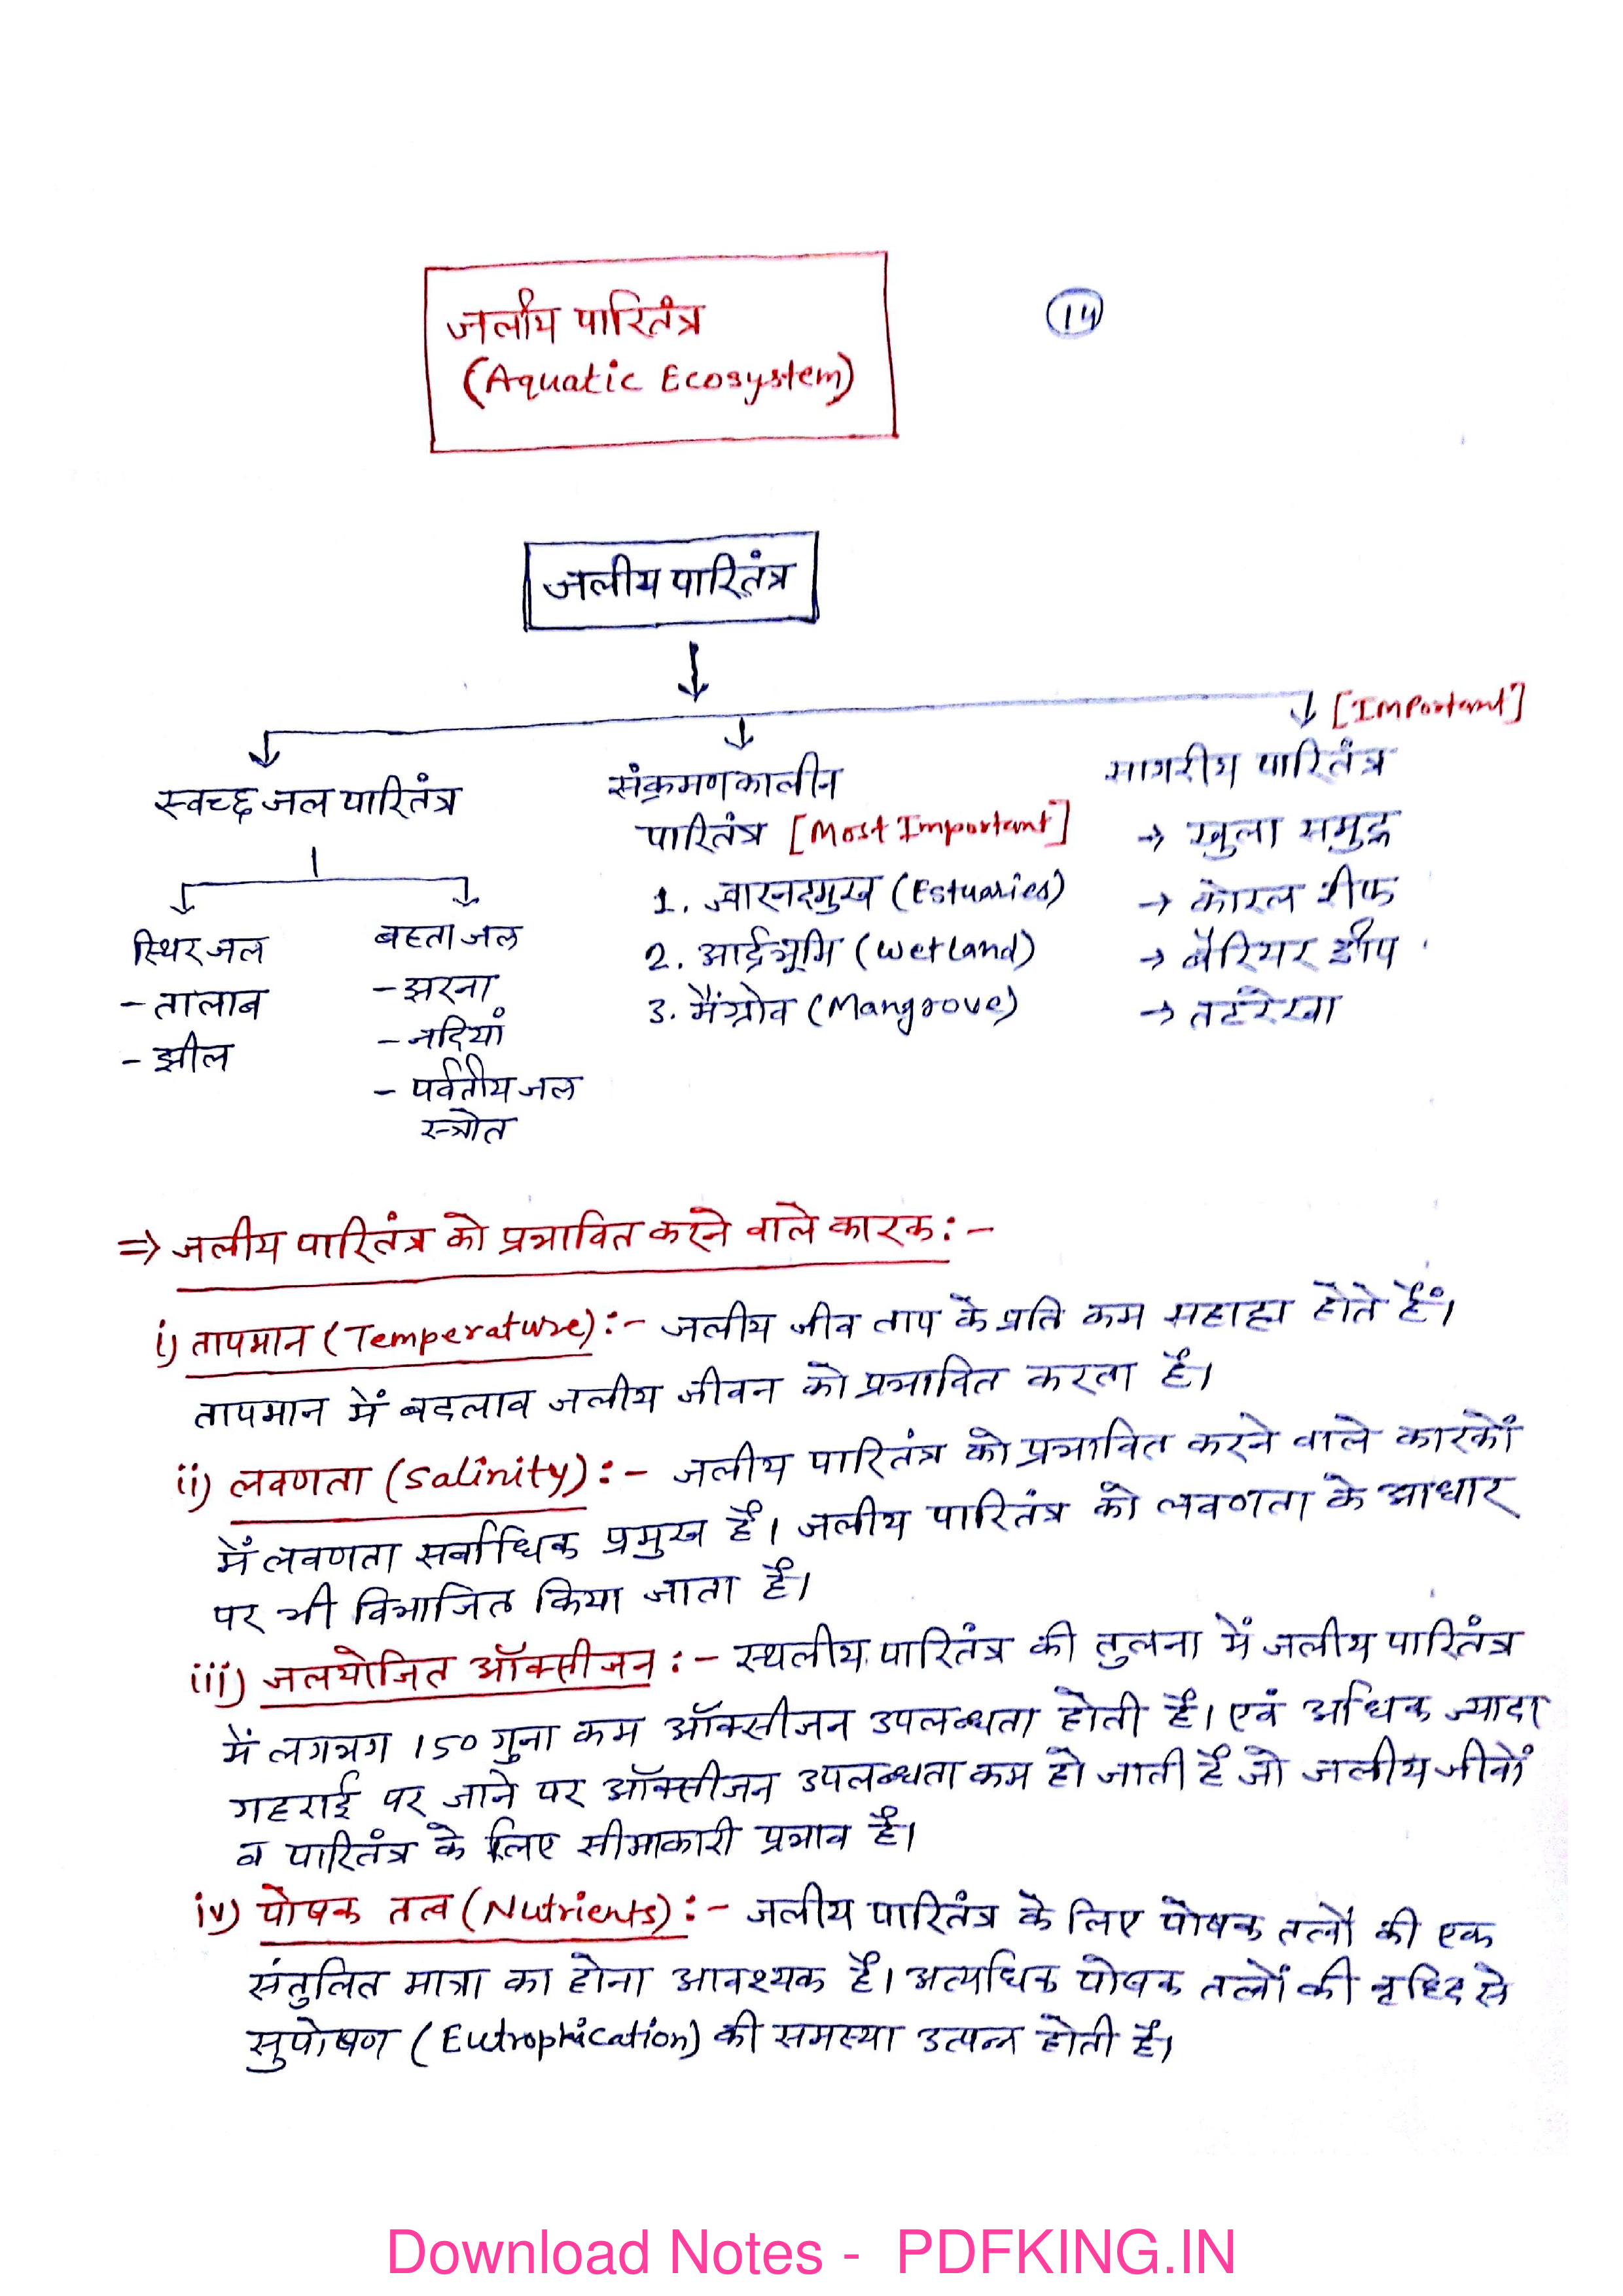 जलीय पारितंत्र
(Aquatic Ecosystem)
14
जलीय पारितंत्र
[Important]
स्वच्छ जल पारितंत्र
संक्रमणकालीन
पारितंत्र [Most Important]
1. ज्वारनदमुख (Estuaries)
2. आर्द्रभूमि (Wetland)
3. मैंग्रोव (Mangrove)
सागरीय पारितंत्र
→ खुला समुद्र
→ कोरल रीफ
→ बैरियर द्वीप
→ तटरेखा
स्थिर जल
- तालाब
- झील
बहता जल
- झरना
- नदियां
- पर्वतीय जल
स्त्रोत
⇒ जलीय पारितंत्र को प्रभावित करने वाले कारक :-
i) तापमान (Temperature) :- जलीय जीव ताप के प्रति कम सहाह्य होते हैं।
तापमान में बदलाव जलीय जीवन को प्रभावित करता है।
ii) लवणता (Salinity) :- जलीय पारितंत्र को प्रभावित करने वाले कारकों
में लवणता सर्वाधिक प्रमुख है। जलीय पारितंत्र को लवणता के आधार
पर भी विभाजित किया जाता है।
iii) जलयोजित ऑक्सीजन :- स्थलीय पारितंत्र की तुलना में जलीय पारितंत्र
में लगभग 150 गुना कम ऑक्सीजन उपलब्धता होती है। एवं अधिक ज्यादा
गहराई पर जाने पर ऑक्सीजन उपलब्धता कम हो जाती है जो जलीय जीवों
व पारितंत्र के लिए सीमाकारी प्रभाव है।
iv) पोषक तत्व (Nutrients) :- जलीय पारितंत्र के लिए पोषक तत्वों की एक
संतुलित मात्रा का होना आवश्यक है। अत्यधिक पोषक तत्वों की वृद्धि से
सुपोषण (Eutrophication) की समस्या उत्पन्न होती है।
Download Notes - PDFKING.IN